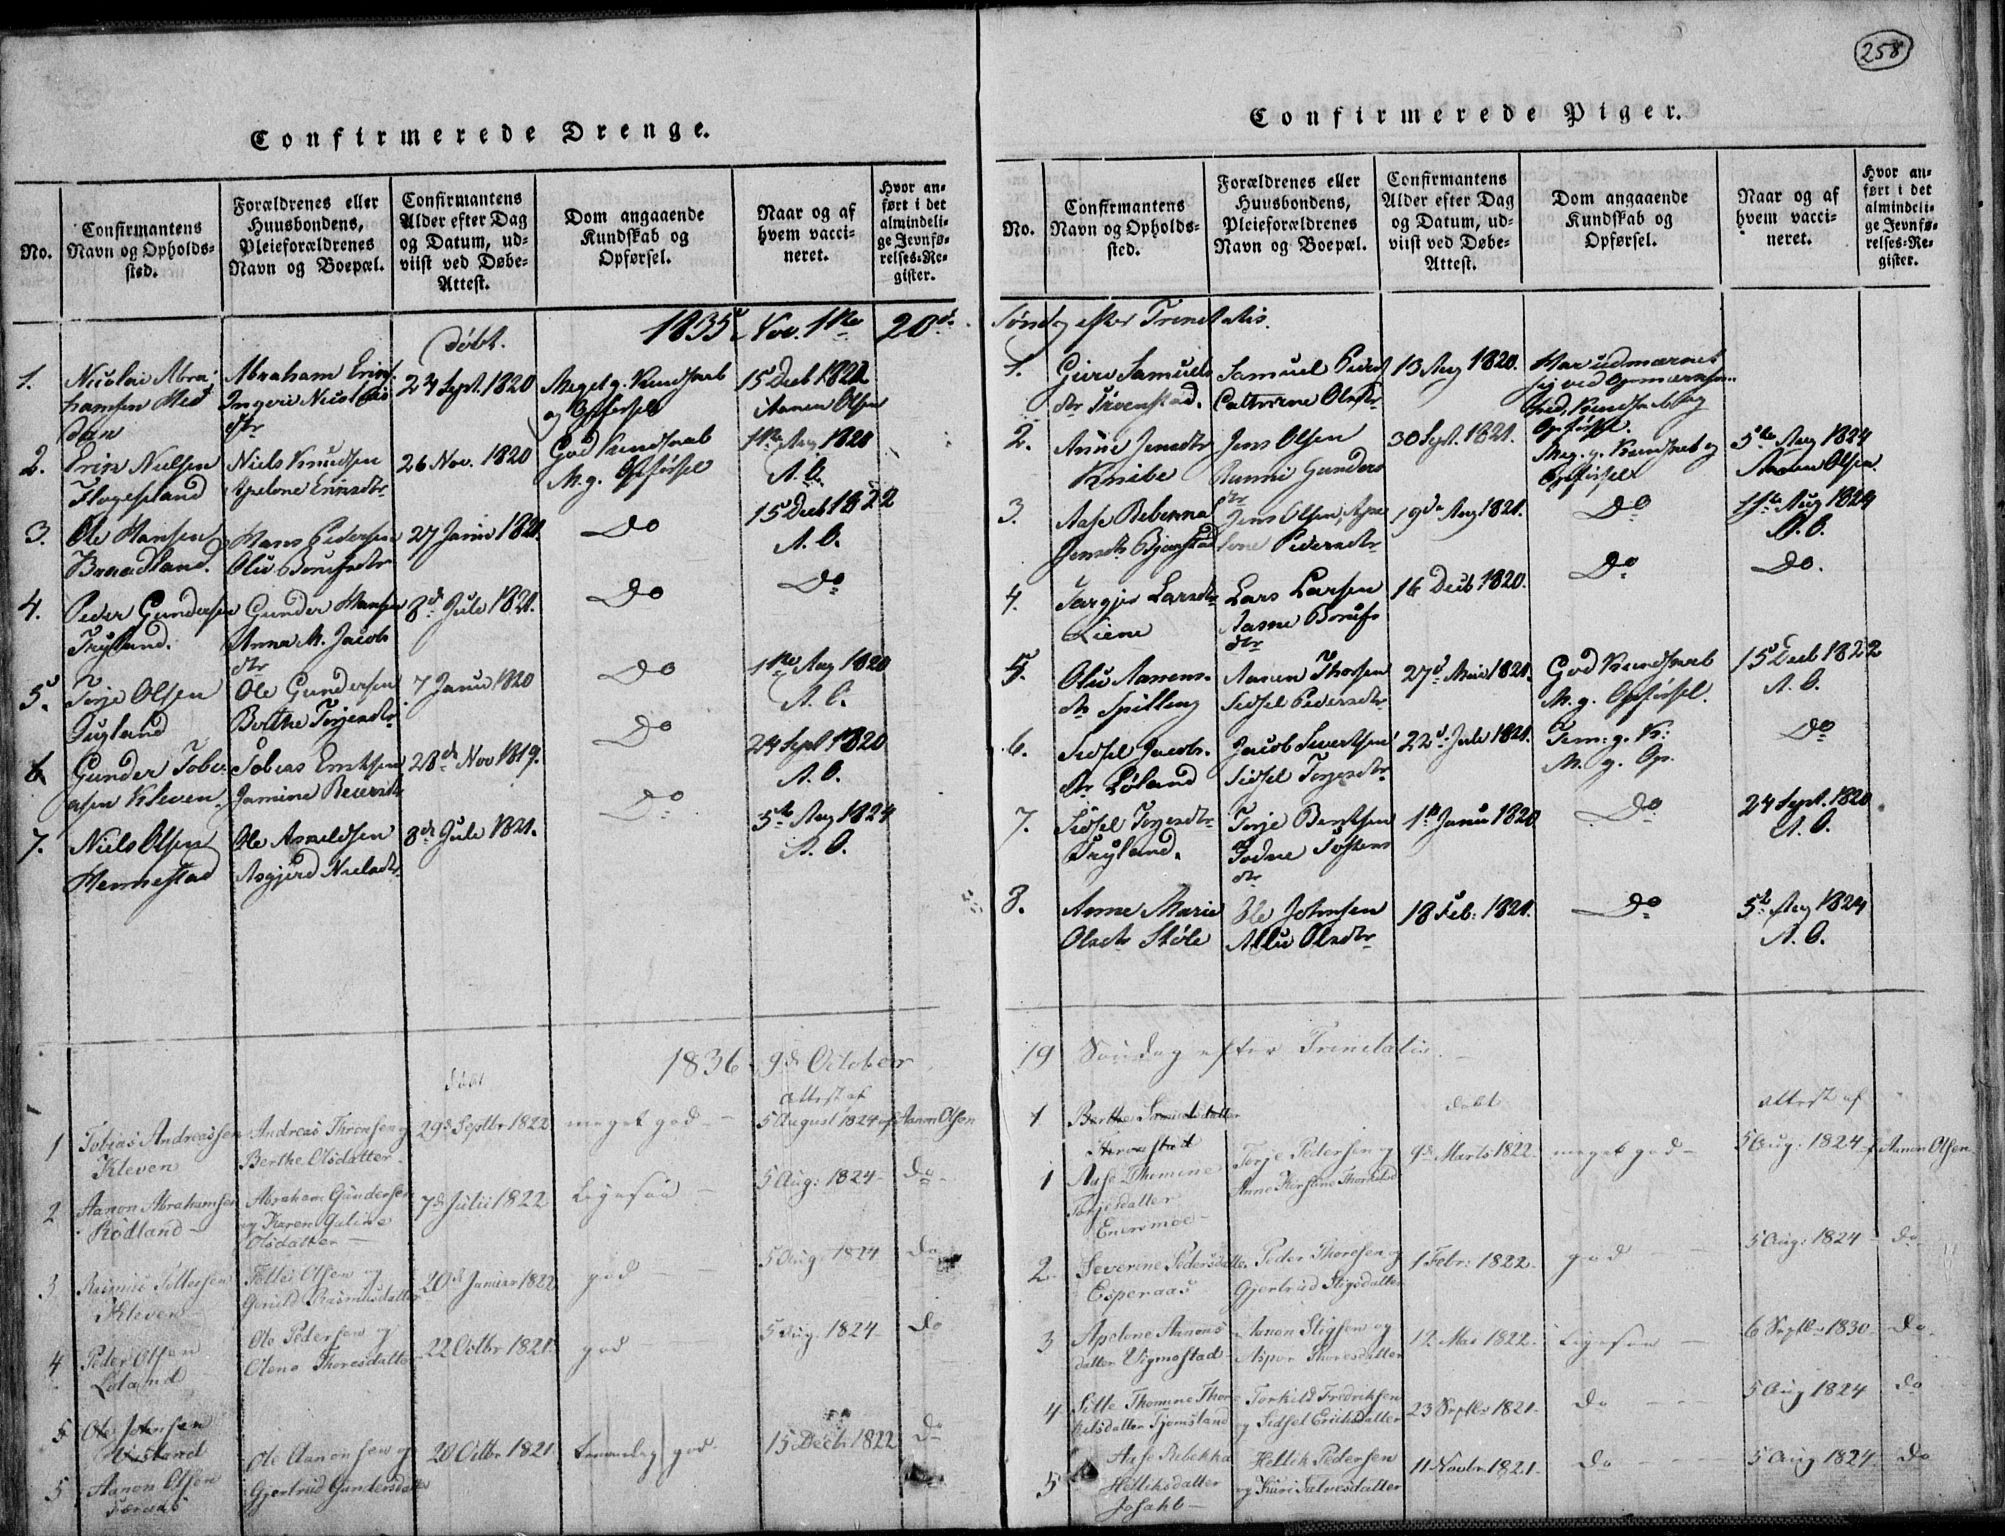 258
Confirmerede Drenge.
No.
Confirmantens
Navn og Opholds-
sted.
Forældrenes eller
Huusbondens,
Pleieforældrenes
Navn og Boepæl.
Confirmantens
Alder efter Dag
og Datum, ud-
viist ved Døbe-
Attest.
Dom angaaende
Kundskab og
Opførsel.
Naar og af
hvem vacci-
neret.
Hvor an-
ført i det
almindeli-
ge Jevnfø-
relses-Re-
gister.
Døbt.
1835 Nov. 1ste 20de
1. Nicolai Abra-
hamsen
Abraham
Ingeri
dtr
24 Sept. 1820
Meget g. Kundskab
og Opførsel
15 Decb 1822
Aanen Olsen
2. Erik Nielsen
Niels Knudsen
Apelone Eriksdtr
26 Nov. 1820
God Kundskab
M. g. Opførsel
A. O.
3. Ole Hansen
Hans Pedersen
27 Janu 1821.
Do
15 Decb 1822
A. O.
4. Peder Gundersen
Tryland.
Gunder Hansen
Anna M. Jacobs
dtr
8de Jule 1821.
Do
Do
5. Torje Olsen
Ole Gundersen
Berthe Torjesdtr
7 Janu 1820
Do
1ste Aug 1820
A. O.
6. Gunder Tobi-
asen Kleven.
Tobias
28de Nov 1819.
Do
24 Sept 1820
A. O.
7. Niels Olsen
Hennestad
Ole
Asgjerd Nielsdtr
8de Jule 1821.
Do
5te Aug 1824
A. O.
1836 9de October
døbt
Attest af
1 Tobias Andreassen
Kleven
Andreas Thronsen og
Berthe Olsdatter
29de Septbr 1822
meget god
5 August 1824 af Aanon Olsen
2 Aanon Abrahamsen
Rødland
Abraham Gundersen
og Karen Guline
Olsdatter
7de Julii 1822
Ligesaa
5 Aug: 1824
Do
3 Rasmus Tellefsen
Kleven
Tellef Olsen og
Rasmusdatter
20de Januar 1822
god
5 Aug: 1824
Do
4 Peder Olsen
Løland
Ole Pedersen og
Olene Thoresdatter
22 Octbr 1821
god
5 Aug. 1824
Do
5 Ole Johnsen
5 Aanon Olsen
Ole Aanonsen og
Gjertrud Gundersdatter
20 Octbr 1821
temmelig god.
15 Decb: 1822
Do
Confirmerede Piger.
No.
Confirmantens
Navn og Opholds-
sted.
Forældrenes eller
Huusbondens,
Pleieforældrenes
Navn og Boepæl.
Confirmantens
Alder efter Dag
og Datum, ud-
viist ved Døbe-
Attest.
Dom angaaende
Kundskab og
Opførsel.
Naar og af
hvem vacci-
neret.
Hvor an-
ført i det
almindeli-
ge Jevnfø-
relses-Re-
gister.
Søndag efter Trinitatis.
1. Guro Samuels
dtr
Samuel
Cathrine Olsdtr
13 Aug 1820.
Har udmærket
sig ved Opmærksom-
hed, Kundskab og
Opførsel.
2. Anne Jensdtr
Knibe
Jens Olsen
Gunders
dtr
30 Sept. 1821.
Meg. g. Kundskab og
Opførsel
5te Aug 1824
Aanen Olsen
3. Aase Rebekka
Jensdtr
Jens Olsen, Ape-
lone Pedersdtr
19de Aug 1821.
Do
Aug 1824
A. O.
4. Targjer Larsdtr
Liene
Lars Larsen
dtr
16 Decb 1820.
Do
Do.
5. Olu Aanens
dtr Spilling
Aanen Thorsen
Sidsel Pedersdtr
27de Mai 1821.
God Kundskab
M. g. Opførsel.
15 Decb 1822
A. O.
6. Sidsel Jacobs
dtr Løland
Jacob Sivertsen
Sidsel Torjesdtr
22de Jule 1821.
Tem: g. K:
M. g. Op.
Do
7. Sidsel Torjesdtr
Tryland.
Torje Berntsen
dtr
1ste Janu 1820
Do
24 Sept. 1820
A. O.
8. Anne Marie
Olsdtr Støle
Ole Johnsen
Olsdtr
18 Feb: 1821.
Do
5te Aug 1824
A. O.
19 Søndag efter Trinitatis.
døbt
Attest af
1 Berthe
1 Aase Thomine
Torjesdatter
Enersmoe
Torje Pedersen og
Anne Kirstine
9de Marts 1822
meget god
5 Aug: 1824 af Aanon Olsen
2 Severine Pedersdatter
Esperaas
Peder Thoresen og
Gjertrud Stigsdatter
1 Febr: 1822
god
5 Aug: 1824
Do
3 Apelone Aanons-
datter Vigmostad
Aanon Stigsen og
Asper Thoresdatter
12 Mai 1822
Ligesaa
6 Septb: 1830
Do
4 Sille Thomine Thor-
kilsdatter Tjomsland
Torkild Fredriksen
og Sidsel Eriksdatter
23 Septb: 1821
Do
5 Aug 1824
Do
5 Aase Rebekka
Helliksdatter
Hellik Pedersen
og Kari Salvesdatter
11 Novbr 1821
Do
5 Aug 1824
Do